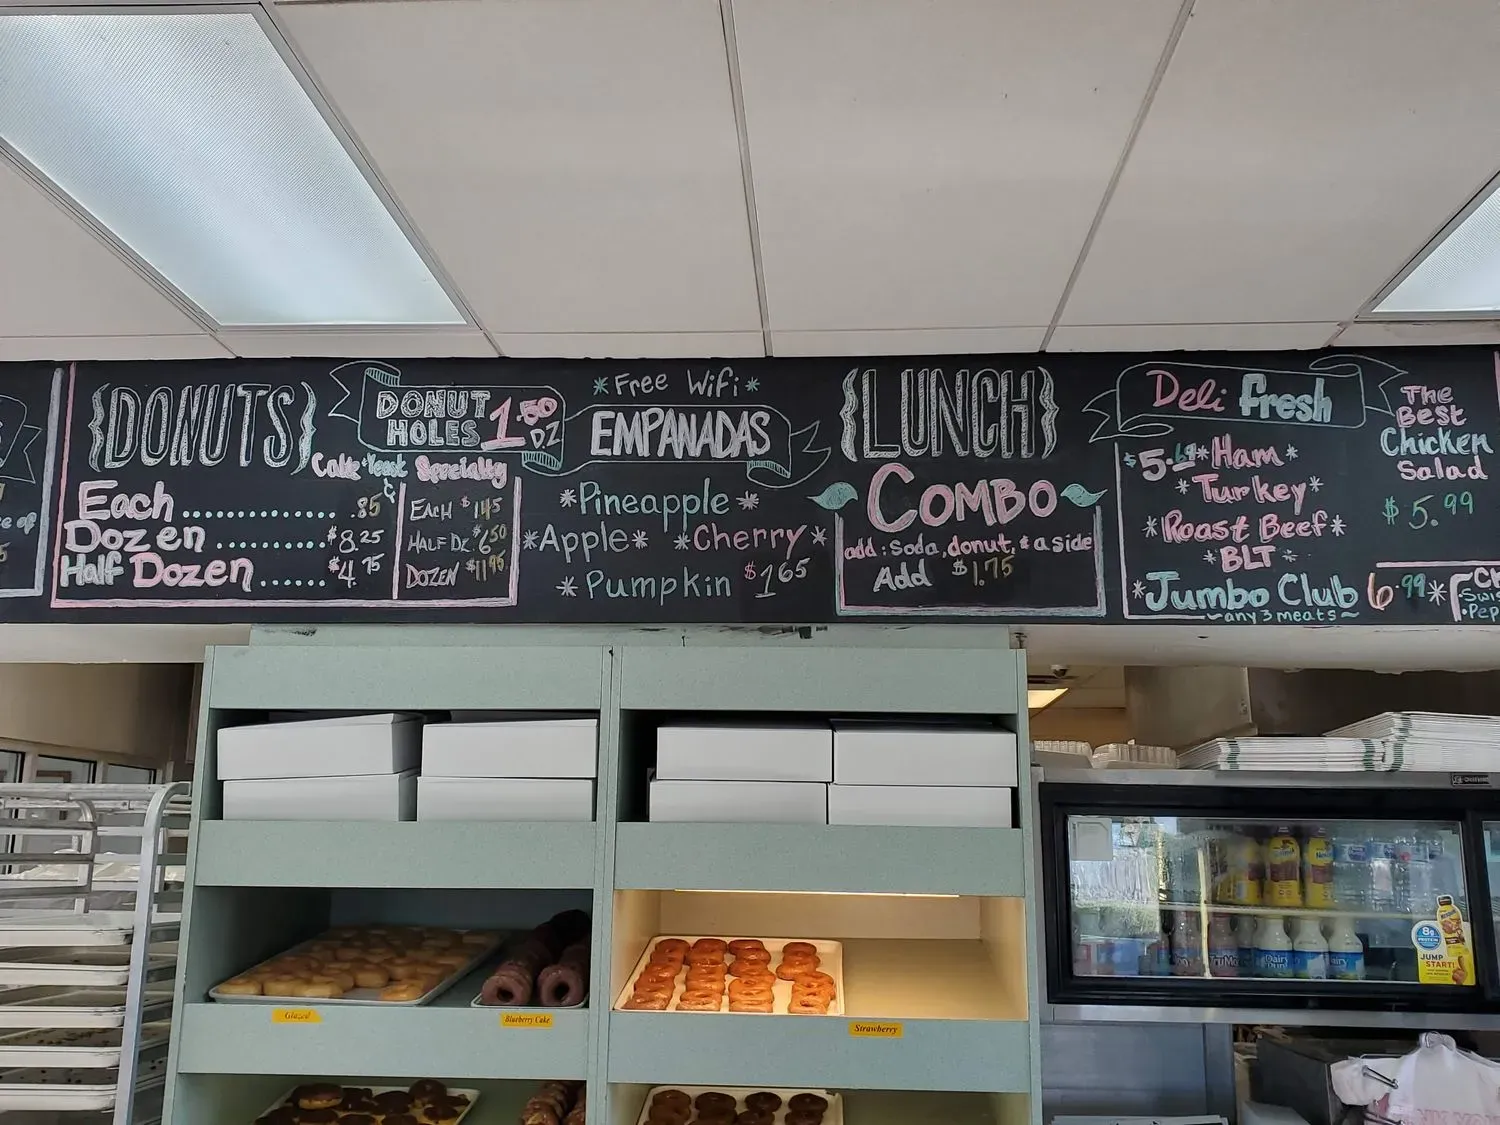 {DONUTS}
Cake & Yeast
Each .............. .85
Dozen .......... $8.25
Half Dozen ...... $4.75
DONUT
HOLES 1.50
DZ
Specialty
EACH $1.45
HALF DZ. $6.50
DOZEN $11.95
*Free Wifi*
EMPANADAS
*Pineapple*
*Apple* *Cherry*
*Pumpkin $1.65
{LUNCH}
COMBO
add: soda, donut, & a side
Add $1.75
Deli fresh
*Ham*
*Turkey*
*Roast Beef*
*BLT*
*Jumbo Club 6.99*
~any 3 meats~
The
Best
Chicken
Salad
$5.99
Glazed
Blueberry Cake
Strawberry
8g
PROTEIN
JUMP
START!
Dairy
Pure
TruMoo